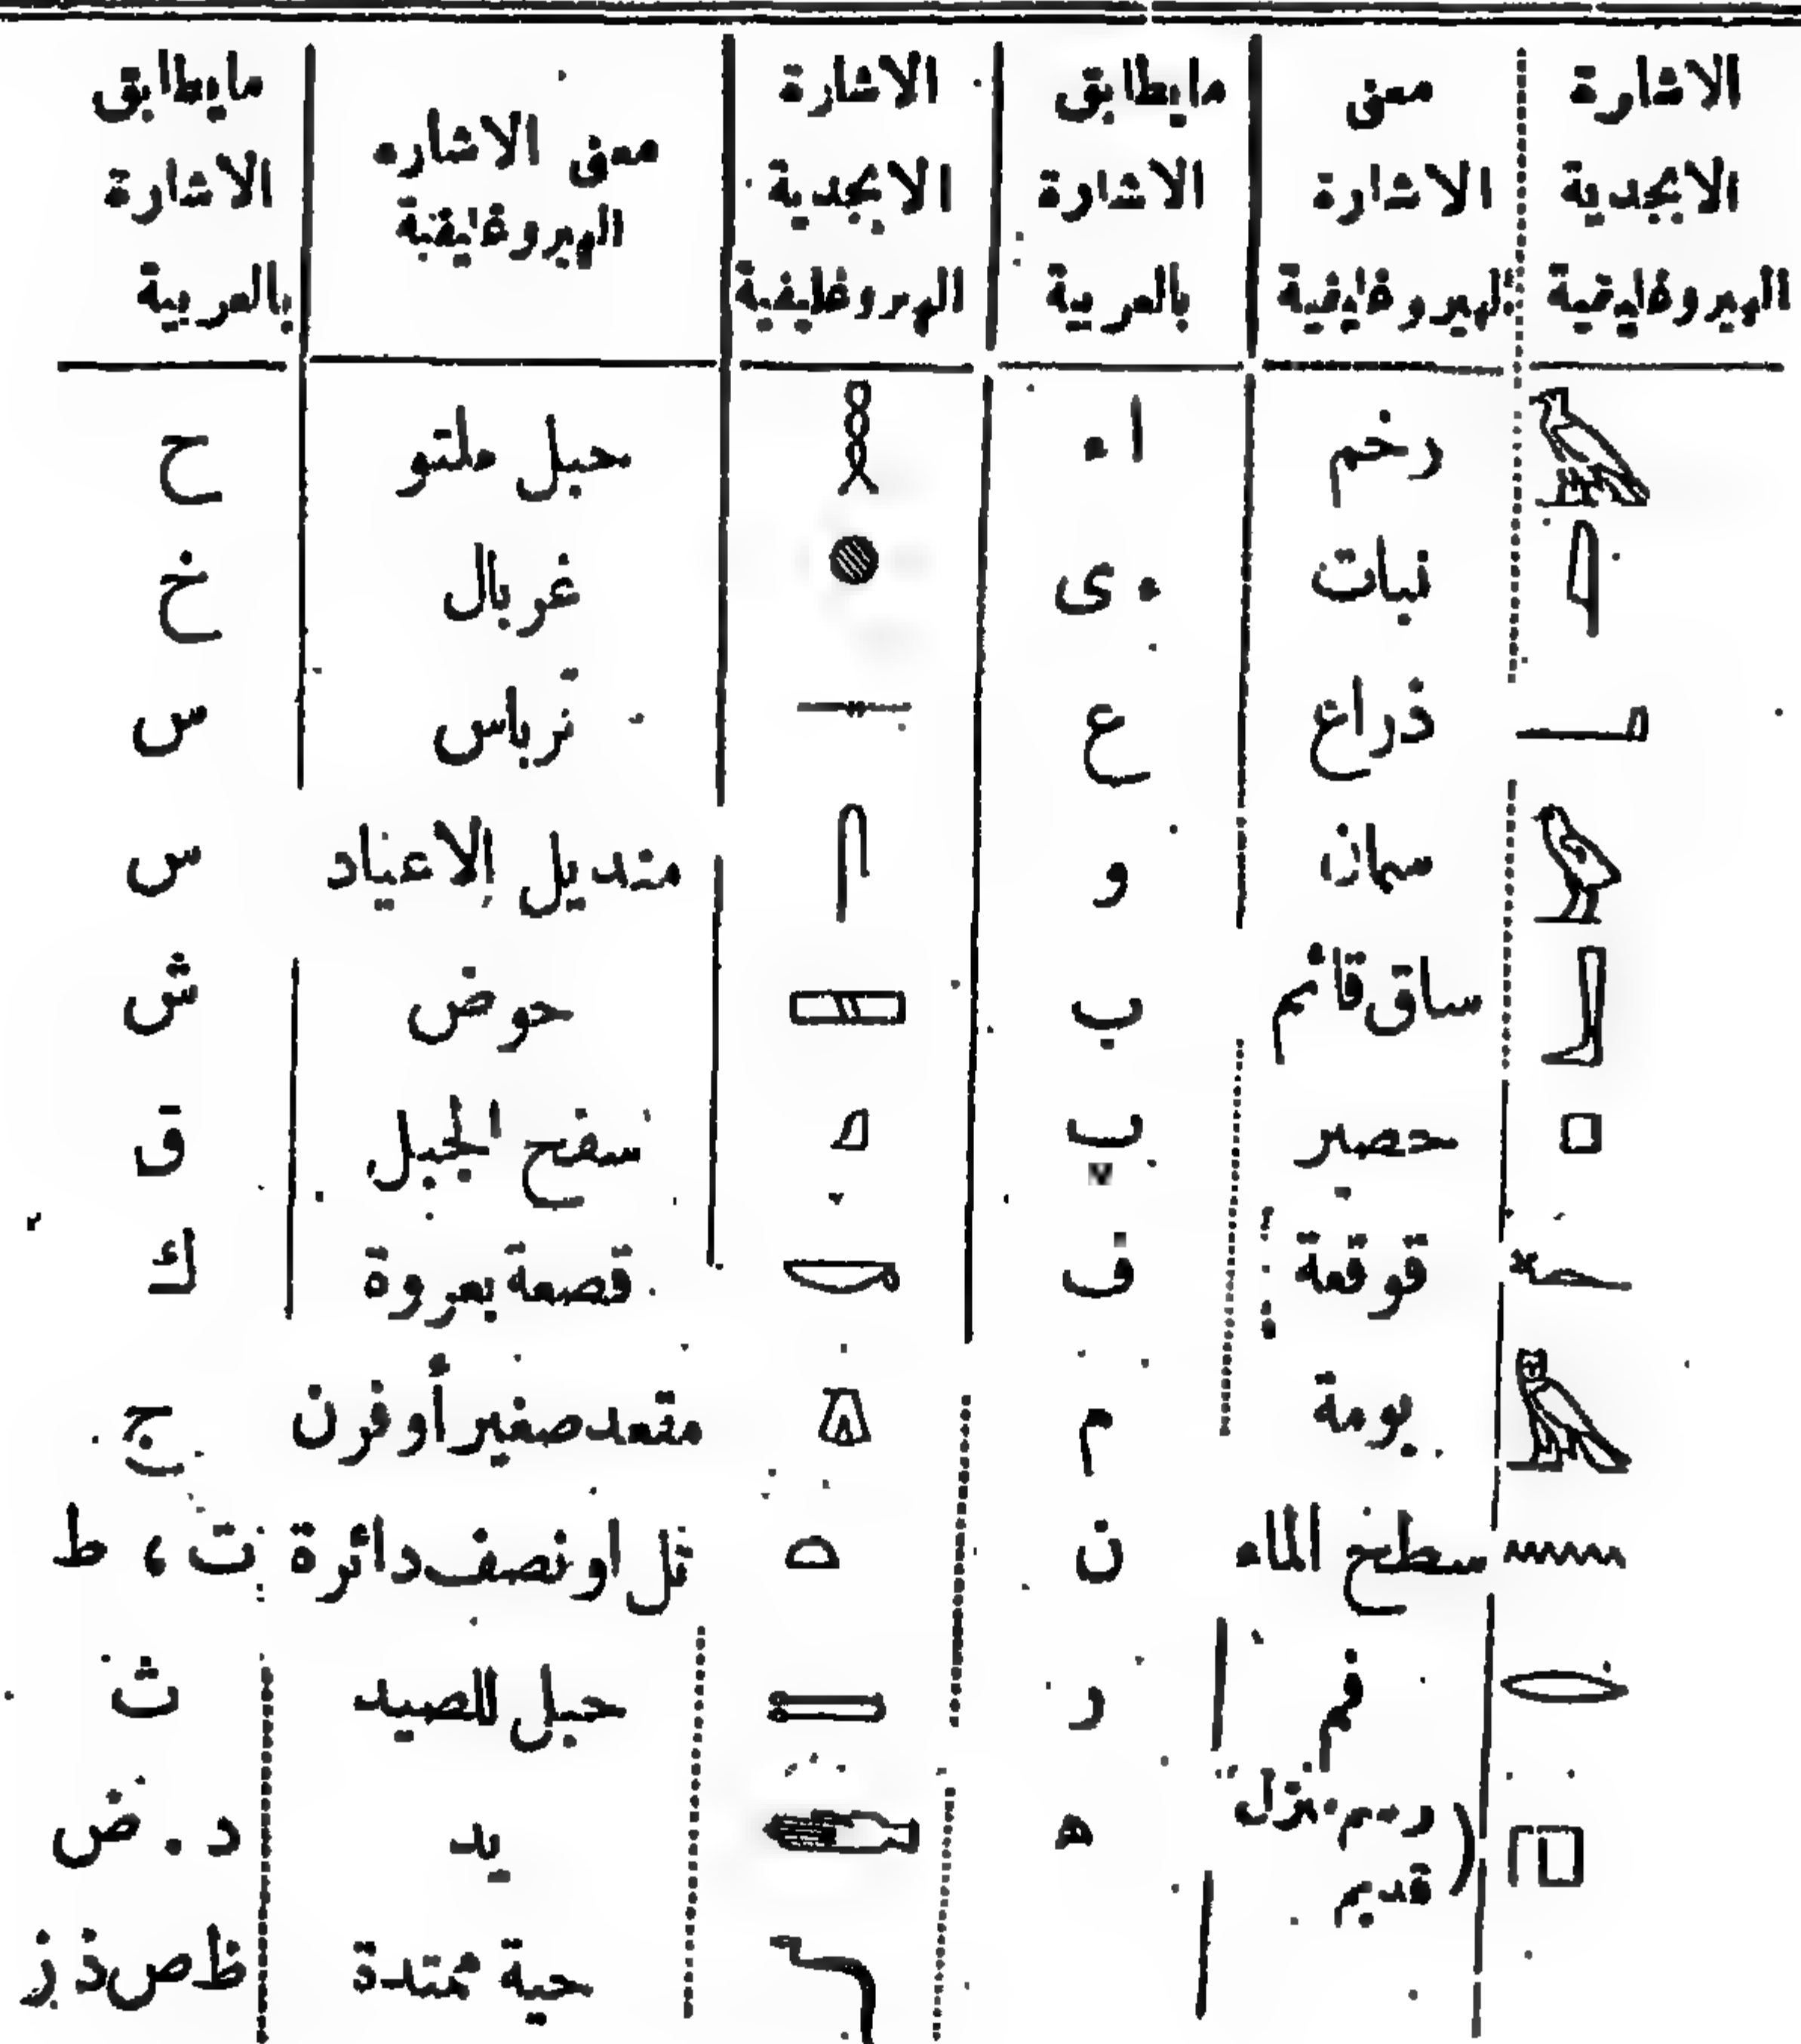 الاشارة الابجدية الهيروغليفية | معنى الاشارة الهيروغليفية | مايطابق الاشارة بالعربية | الاشارة الابجدية الهيروغليفية | معنى الاشاره الهيروغليفية | مايطابق الاشارة بالعربية
رخم | ا ء | حبل ملتو | ح
نبات | ء ى | غربال | خ
ذراع | ع | ترباس | س
سمان | و | منديل الاعياد | س
ساق قائم | ب | حوض | ش
حصير | پ | سفح الجبل | ق
قوقعة | ف | قصعة بعروة | ك
بومة | م | مقعد صغير أو فرن | ج
سطح الماء | ن | تل او نصف دائرة | ت ، ط
فم | ر | حبل للصيد | ث
(رسم منزل قديم | ه | يد | د . ض
حية ممتدة | ظ ص ذ ز